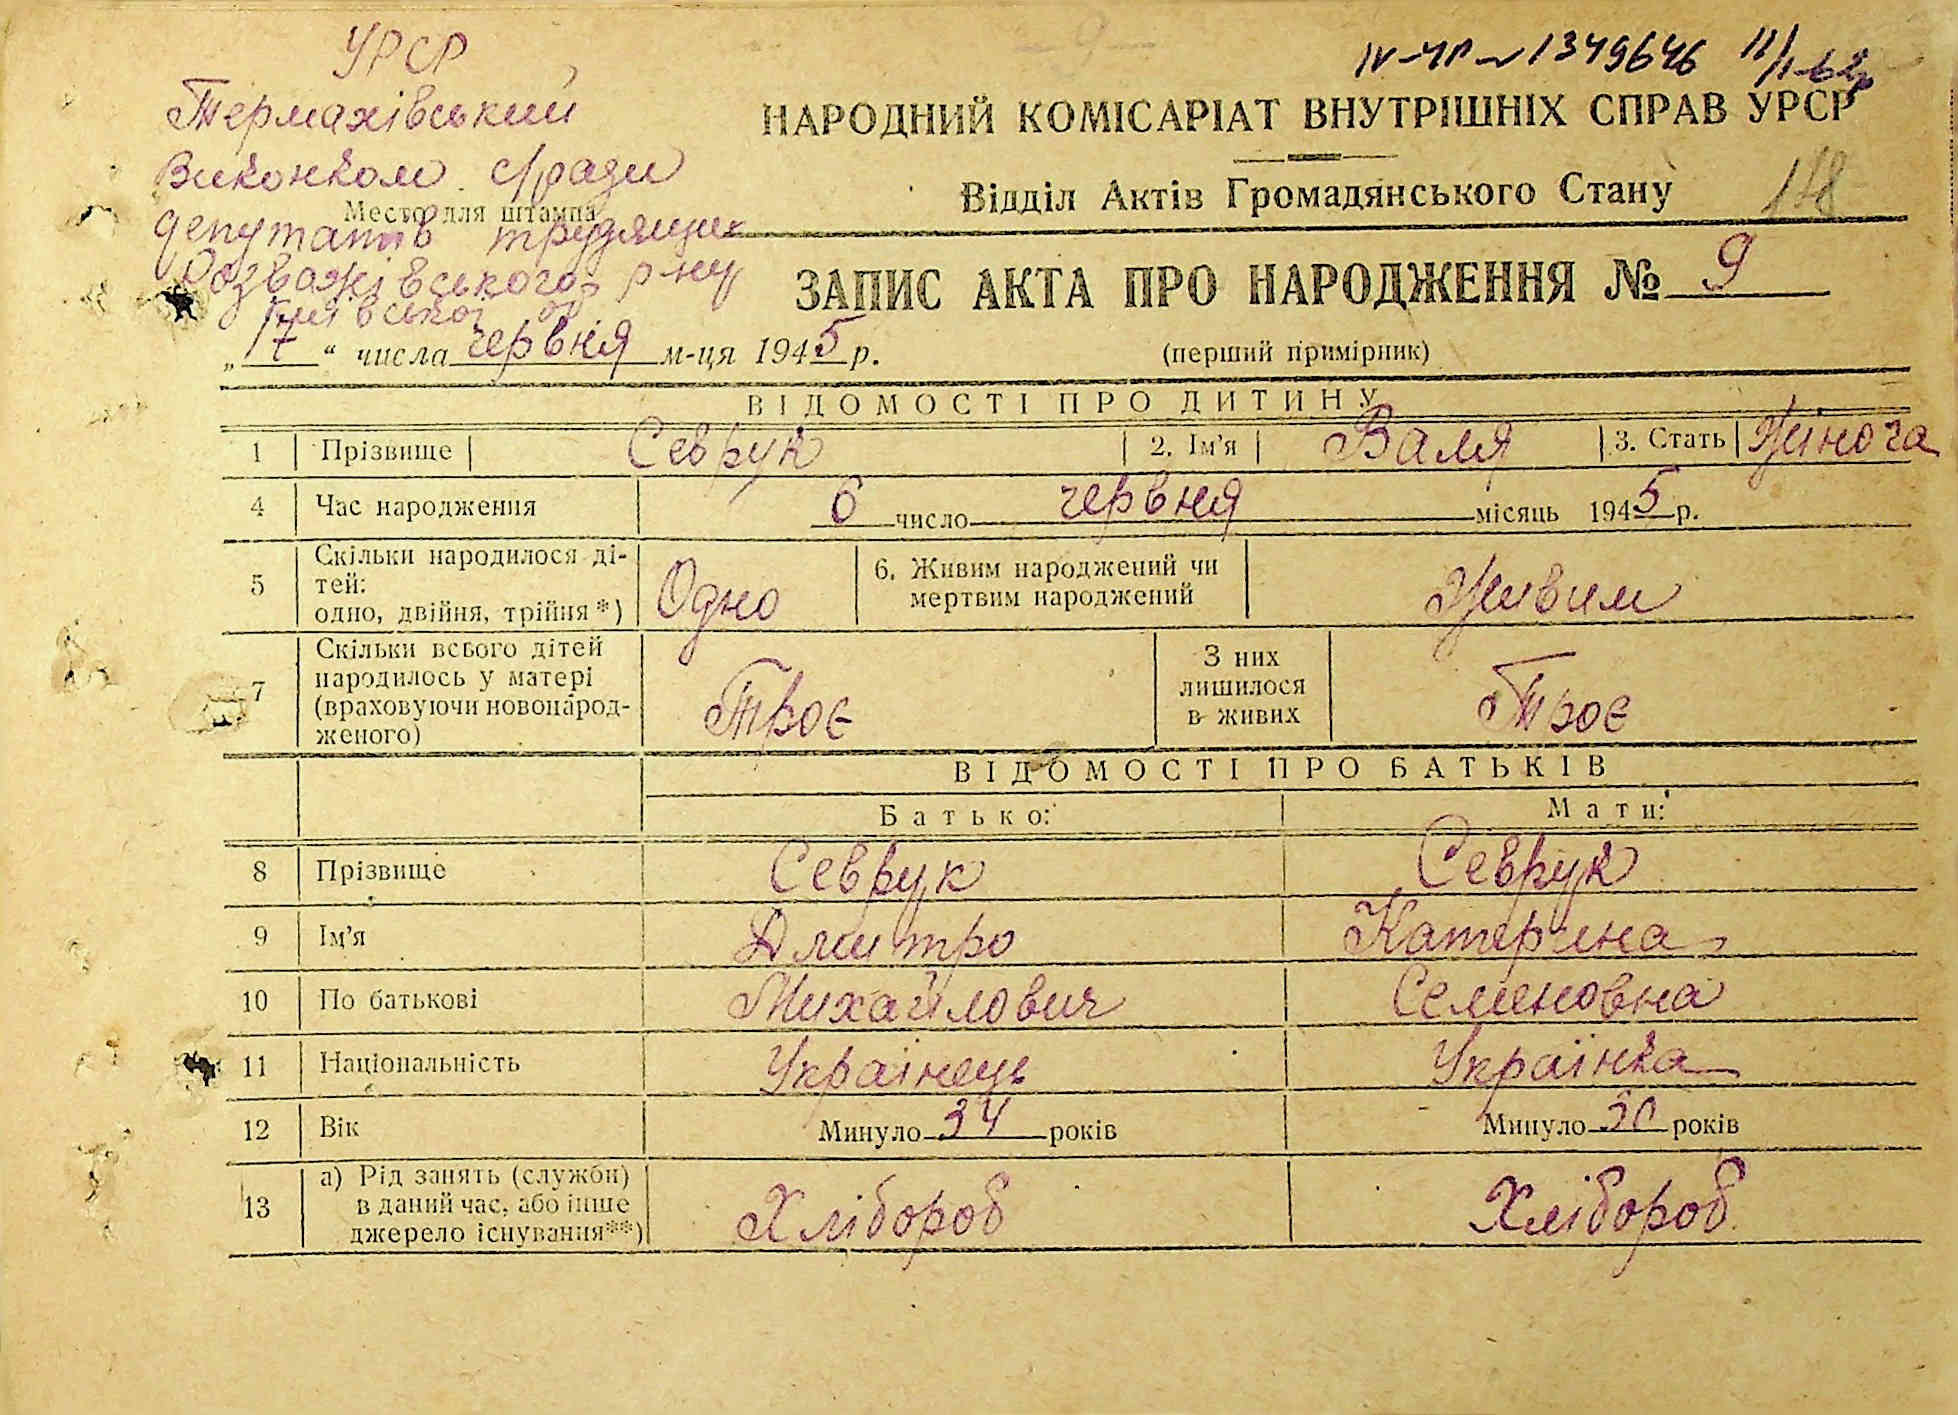 УРСР
Термахівський
Виконком с/ради
Место для штампа
депутатів трудящих
Розважівського р-ну
Київської об
IV-ЧП № 1349646 11/I-62р
НАРОДНИЙ КОМІСАРІАТ ВНУТРІШНІХ СПРАВ УРСР
Відділ Актів Громадянського Стану
118
ЗАПИС АКТА ПРО НАРОДЖЕННЯ № 9
„17“ числа червня м-ця 1945 р.
(перший примірник)
ВІДОМОСТІ ПРО ДИТИНУ
1 Прізвище Севрук 2. Ім'я Валя 3. Стать Жіноча
4 Час народження 6 число червня місяць 1945 р.
5 Скільки народилося ді-
тей:
одно, двійня, трійня*) Одно 6. Живим народжений чи
мертвим народжений Живим
7 Скільки всього дітей
народилось у матері
(враховуючи новонарод-
женого) Троє З них
лишилося
в живих Троє
ВІДОМОСТІ ПРО БАТЬКІВ
Батько: Мати:
8 Прізвище Севрук Севрук
9 Ім'я Дмитро Катерина
10 По батькові Михайлович Семеновна
11 Національність Українець Українка
12 Вік Минуло 34 років Минуло 30 років
13 а) Рід занять (служби)
в даний час, або інше
джерело існування**) Хлібороб Хлібороб